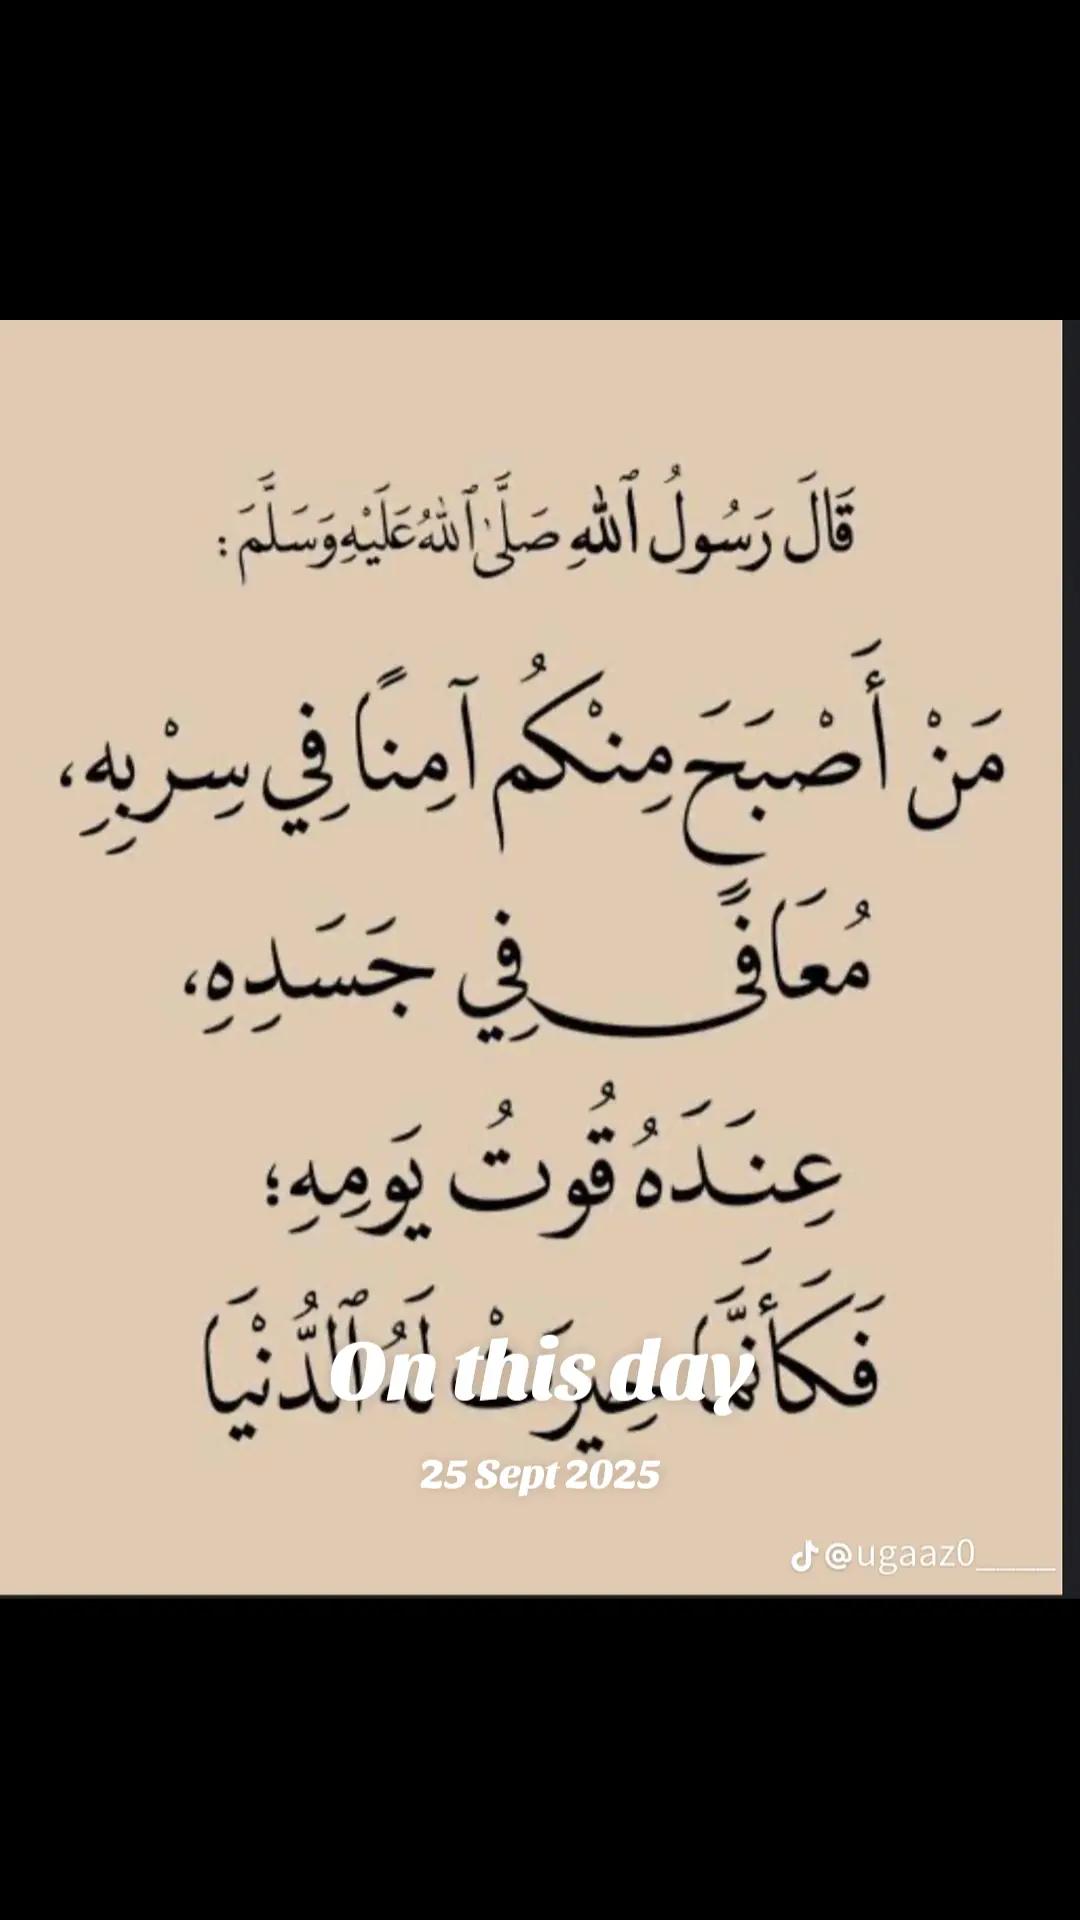 قَالَ رَسُولُ ٱللهِ صَلَّىٰ ٱللهُ عَلَيْهِ وَسَلَّمَ :
مَنْ أَصْبَحَ مِنْكُم آمِنًا فِي سِرْبِهِ،
مُعَافًى فِي جَسَدِهِ،
عِندَهُ قُوتُ يَومِهِ؛
فَكَأَنَّمَا حِيزَتْ لَهُ ٱلدُّنْيَا
On this day
25 Sept 2025
@ugaaz0____